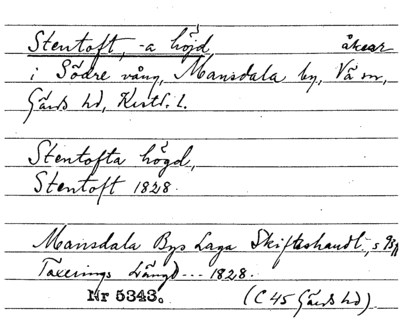 Stentoft, -a höjd, åkear
i Södre vång, Mansdala by, Vä sn,
Gärds hd, Krstl. l.
Stentofta högd,
Stentoft 1828.
Mansdala Bys Laga Skifteshandl.,
Taxerings Längd --- 1828.
Nr 5343. (C 45 Gärds hd).